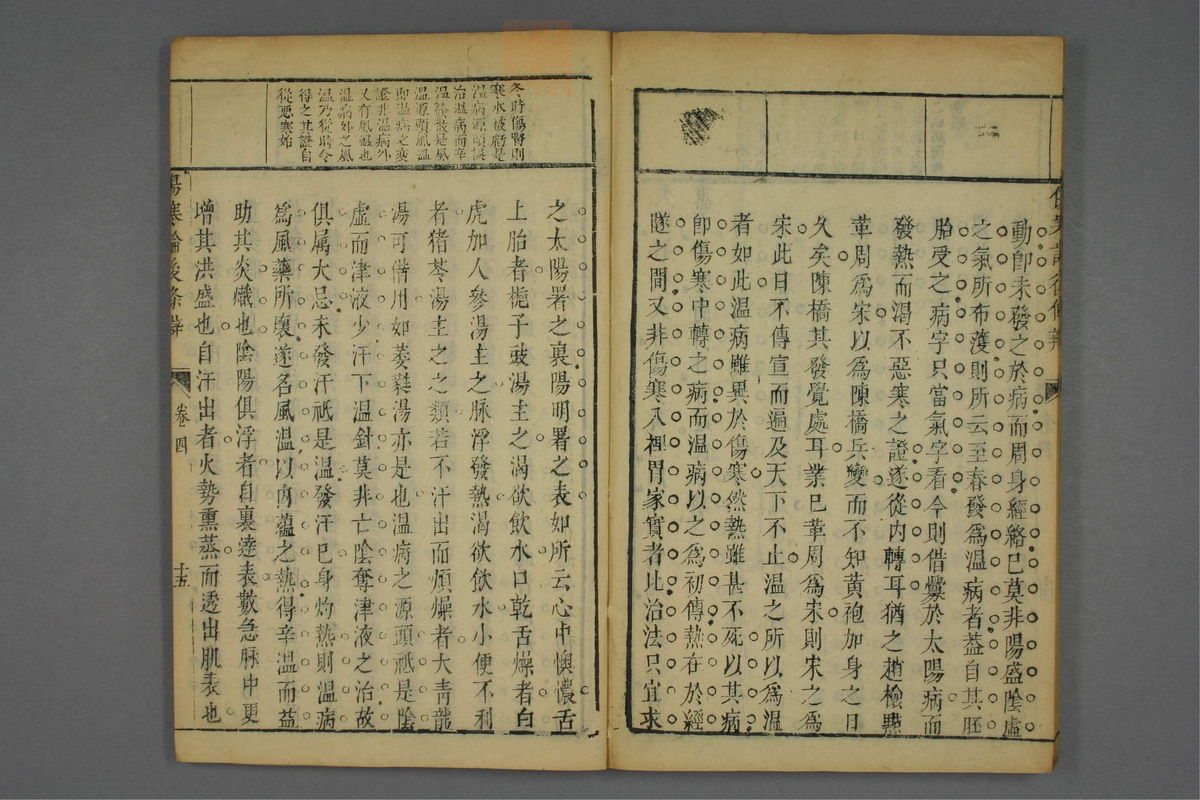 動卽未發之於病而周身經絡已莫非陽盛陰虛
之氣所布濩則所云至春發爲溫病者蓋自其胚
胎受之病字只當氣字看今則借釁於太陽病而
發熱而渴不惡寒之證遂從内轉耳猶之趙檢點
革周爲宋以爲陳橋兵變而不知黃袍加身之日
久矣陳橋其發覺處耳業已革周爲宋則宋之爲
宋此日不傳宣而遍及天下不止溫之所以爲溫
者如此溫病雖異於傷寒然熱雖甚不死以其病
卽傷寒中轉之病而溫病以之爲初傳熱在於經
隧之間又非傷寒入裡胃家實者比治法只宜求
冬時傷腎則
寒水被虧是
溫病源頭誤
治溫病而辛
溫發散是風
溫源頭風溫
卽溫病之變
證非溫病外
又有風溫也
溫病外之風
溫乃從時令
得之其證自
從惡寒始
之太陽署之裏陽明署之表如所云心中懊憹舌
上胎者梔子豉湯主之渴欲飲水口乾舌燥者白
虎加人參湯主之脉浮發熱渴欲飲水小便不利
者猪苓湯主之之類若不汗出而煩燥者大靑龍
湯可借用如葳蕤湯亦是也溫病之源頭祇是陰
虛而津液少汗下溫針莫非亡陰奪津液之治故
俱屬大忌未發汗祇是溫發汗已身灼熱則溫病
爲風藥所壞遂名風溫以内蘊之熱得辛溫而益
助其炎熾也陰陽俱浮者自裏達表數急脉中更
增其洪盛也自汗出者火勢熏蒸而透出肌表也
傷寒論後條辨
卷四
十五